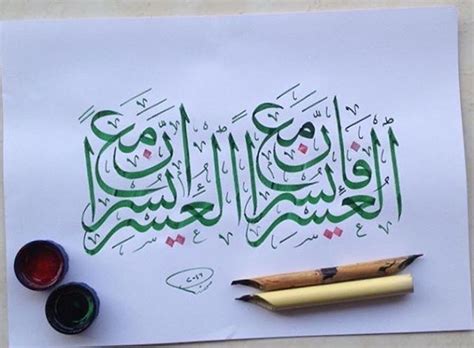 فإنّ مع العسر يسراً
إنّ مع العسر يسراً
٢٠١٦